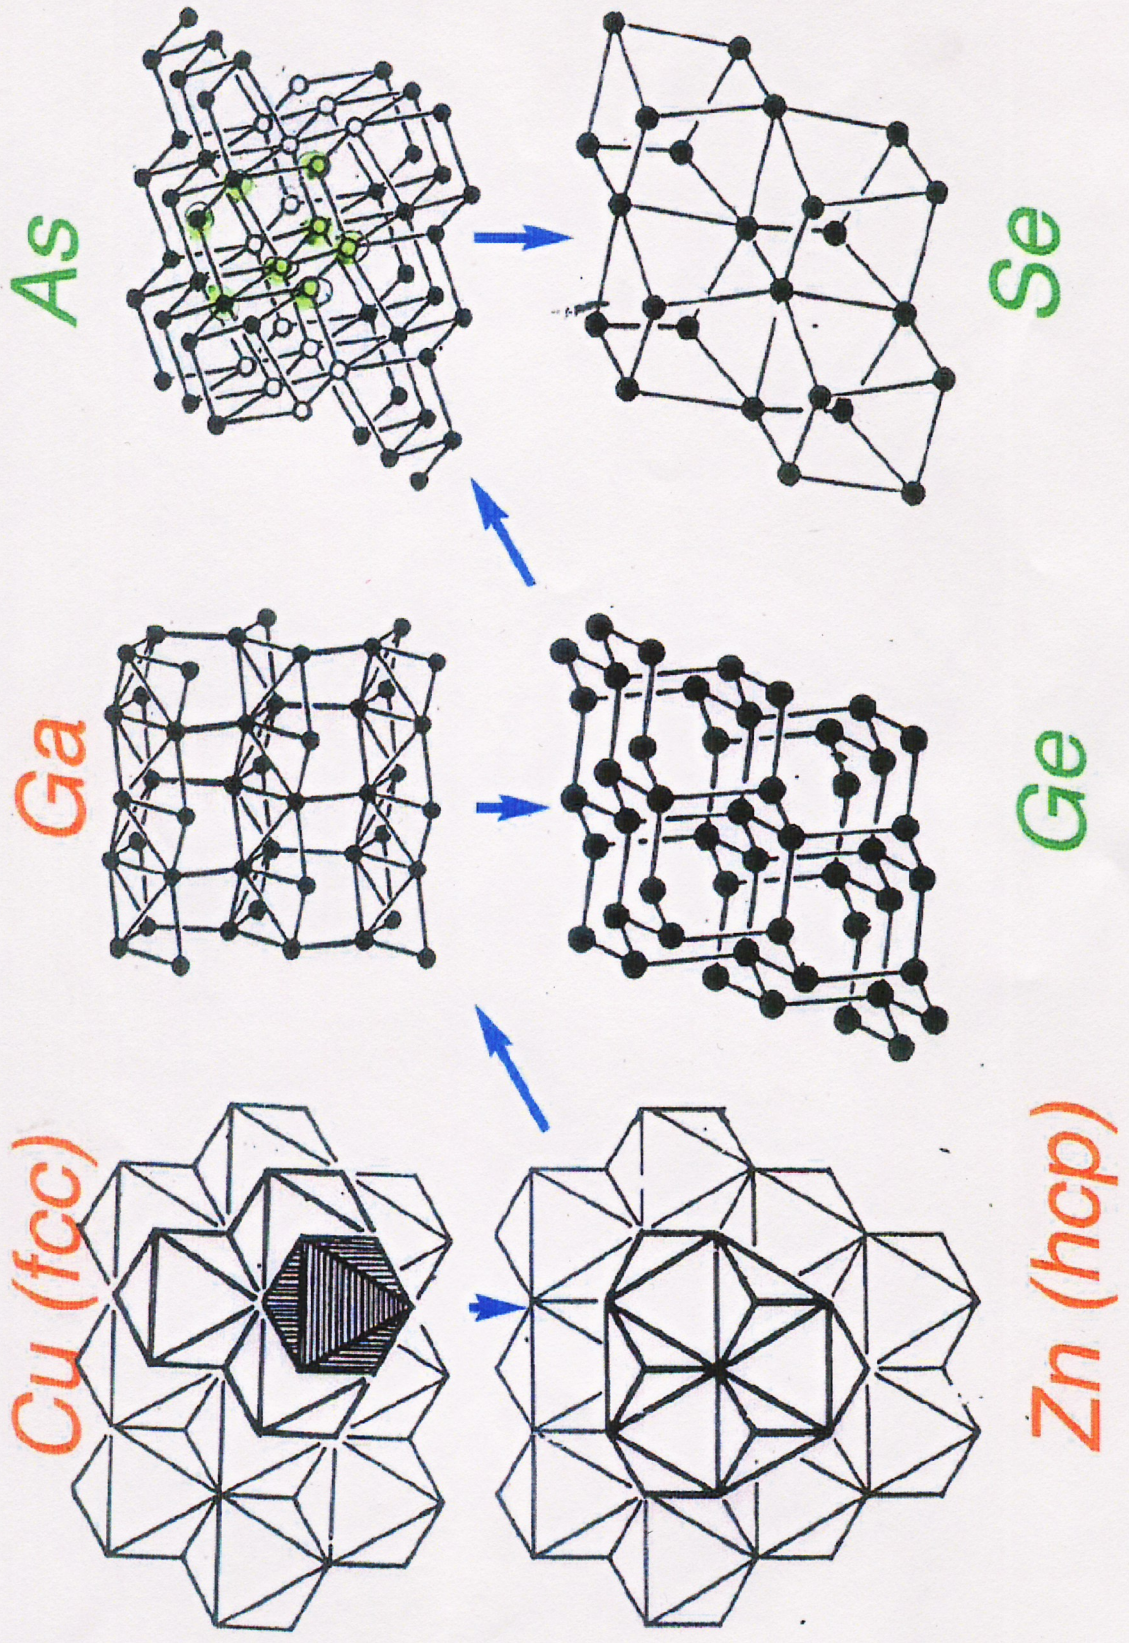 Cu (fcc)
Ga
As
Zn (hcp)
Ge
Se